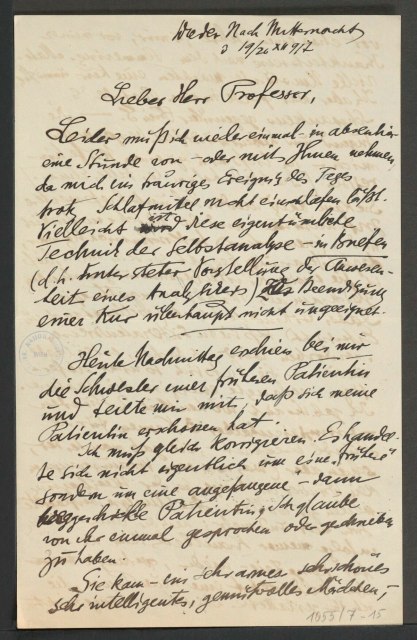 Wieder Nach Mitternacht
19/20 XII 917
Lieber Herr Professor,
Leider muß ich wieder einmal - in absentia
eine Stunde von - oder mit Ihnen nehmen
da mich ein trauriges Ereignis des Tages
trotz Schlafmittel nicht einschlafen läßt.
Vielleicht ist diese eigentümliche
Technik der Selbstanalyse - in Briefen
(d.h. unter steter Vorstellung der Anwesen-
heit eines Analytikers) zur Beendigung
einer Kur überhaupt nicht ungeeignet.
Heute Nachmittag erschien bei mir
die Schwester einer früheren Patientin
und teilte mir mit, daß sich meine
Patientin erschossen hat.
Ich muß gleich korrigieren. Es handel-
te sich nicht eigentlich um eine „frühere"
sondern um eine angefangene - dann
weggeschickte Patientin; Ich glaube
von ihr einmal gesprochen oder geschrieben
zu haben.
Sie kam - ein sehr schönes
sehr intelligentes, gemütvolles Mädchen,
1055/7-15